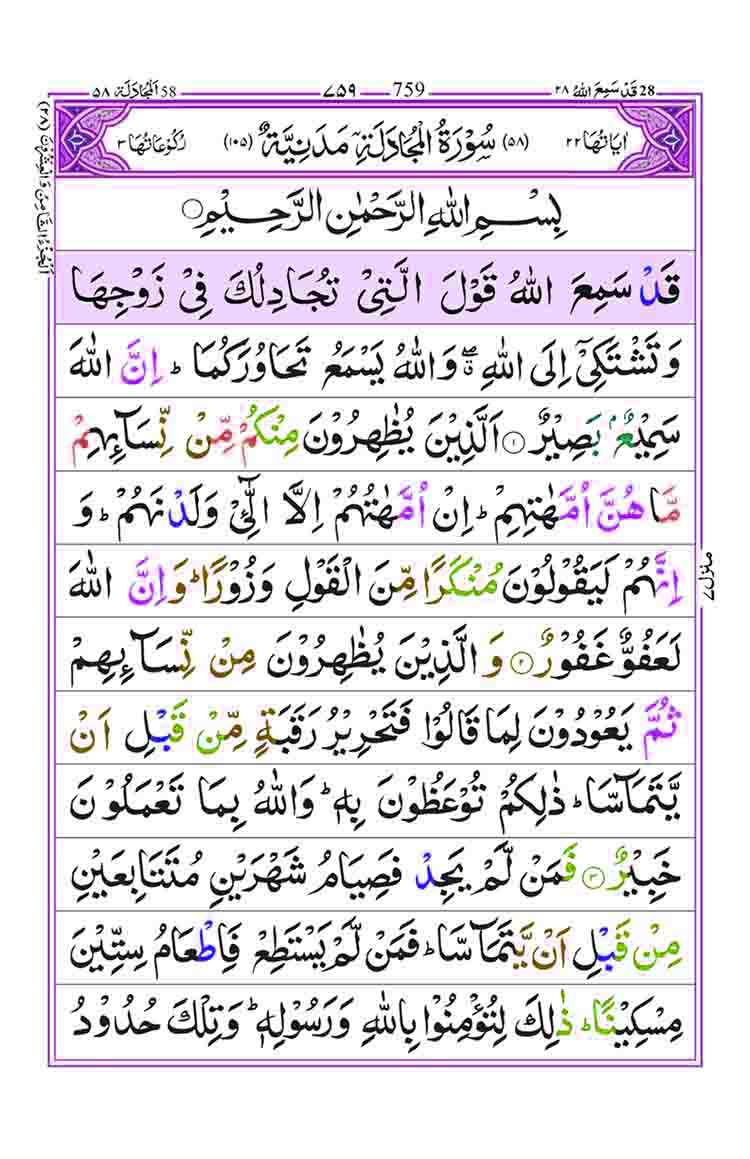 28 قَدْ سَمِعَ اللهُ ٢٨ 759 ٧٥٩ 58 اَلْمُجَادَلَة ٥٨
اٰيَاتُهَا ٢٢ (٥٨) سُوْرَةُ الْمُجَادَلَةِ مَدَنِيَّةٌ (١٠٥) رُكُوْعَاتُهَا ٣
بِسْمِ اللهِ الرَّحْمٰنِ الرَّحِيْمِ
قَدْ سَمِعَ اللهُ قَوْلَ الَّتِىْ تُجَادِلُكَ فِىْ زَوْجِهَا
وَ تَشْتَكِىْٓ اِلَى اللهِ ۖ وَاللهُ يَسْمَعُ تَحَاوُرَكُمَا ؕ اِنَّ اللهَ
سَمِيْعٌۢ بَصِيْرٌ ۝١ اَلَّذِيْنَ يُظٰهِرُوْنَ مِنْكُمْ مِّنْ نِّسَآئِهِمْ
مَّا هُنَّ اُمَّهٰتِهِمْ ؕ اِنْ اُمَّهٰتُهُمْ اِلَّا الّٰٓـِٔىْ وَلَدْنَهُمْ ؕ وَ
اِنَّهُمْ لَيَقُوْلُوْنَ مُنْكَرًا مِّنَ الْقَوْلِ وَزُوْرًا ؕ وَ اِنَّ اللهَ
لَعَفُوٌّ غَفُوْرٌ ۝٢ وَ الَّذِيْنَ يُظٰهِرُوْنَ مِنْ نِّسَآئِهِمْ
ثُمَّ يَعُوْدُوْنَ لِمَا قَالُوْا فَتَحْرِيْرُ رَقَبَةٍ مِّنْ قَبْلِ اَنْ
يَّتَمَآسَّا ؕ ذٰلِكُمْ تُوْعَظُوْنَ بِهٖ ؕ وَاللهُ بِمَا تَعْمَلُوْنَ
خَبِيْرٌ ۝٣ فَمَنْ لَّمْ يَجِدْ فَصِيَامُ شَهْرَيْنِ مُتَتَابِعَيْنِ
مِنْ قَبْلِ اَنْ يَّتَمَآسَّا ؕ فَمَنْ لَّمْ يَسْتَطِعْ فَاِطْعَامُ سِتِّيْنَ
مِسْكِيْنًا ؕ ذٰلِكَ لِتُؤْمِنُوْا بِاللهِ وَرَسُوْلِهٖ ؕ وَتِلْكَ حُدُوْدُ
اَلْجُزْءُ الثَّامِنُ وَ الْعِشْرُوْنَ (٢٨)
منزل ٧